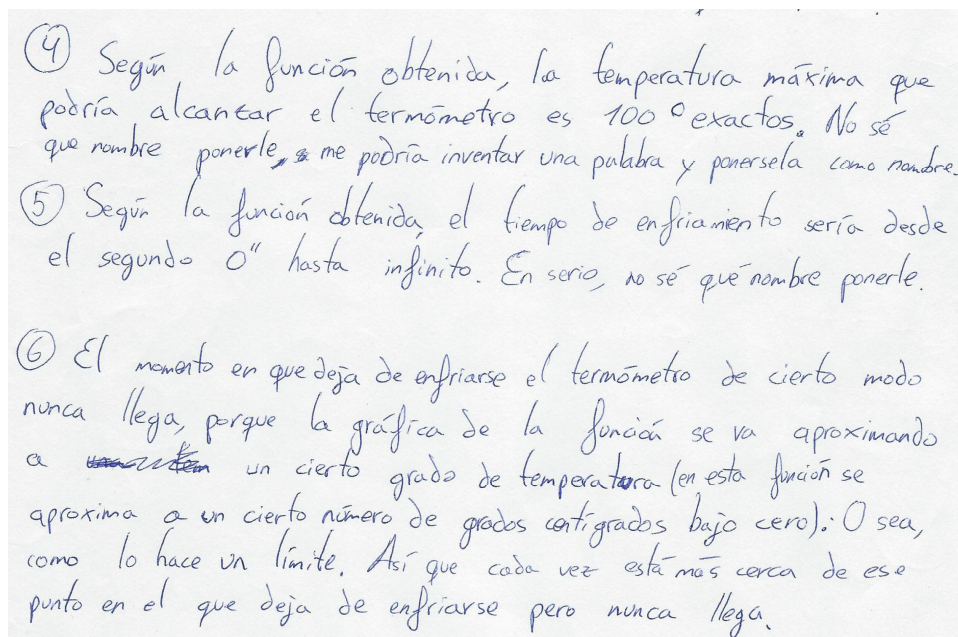 ④ Según la función obtenida, la temperatura máxima que
podría alcanzar el termómetro es 100° exactos. No sé
que nombre ponerle, me podría inventar una palabra y ponersela como nombre.
⑤ Según la función obtenida, el tiempo de enfriamiento sería desde
el segundo 0" hasta infinito. En serio, no sé qué nombre ponerle.
⑥ El momento en que deja de enfriarse el termómetro de cierto modo
nunca llega, porque la gráfica de la función se va aproximando
a un cierto grado de temperatura (en esta función se
aproxima a un cierto número de grados centígrados bajo cero). O sea,
como lo hace un límite. Así que cada vez está más cerca de ese
punto en el que deja de enfriarse pero nunca llega.